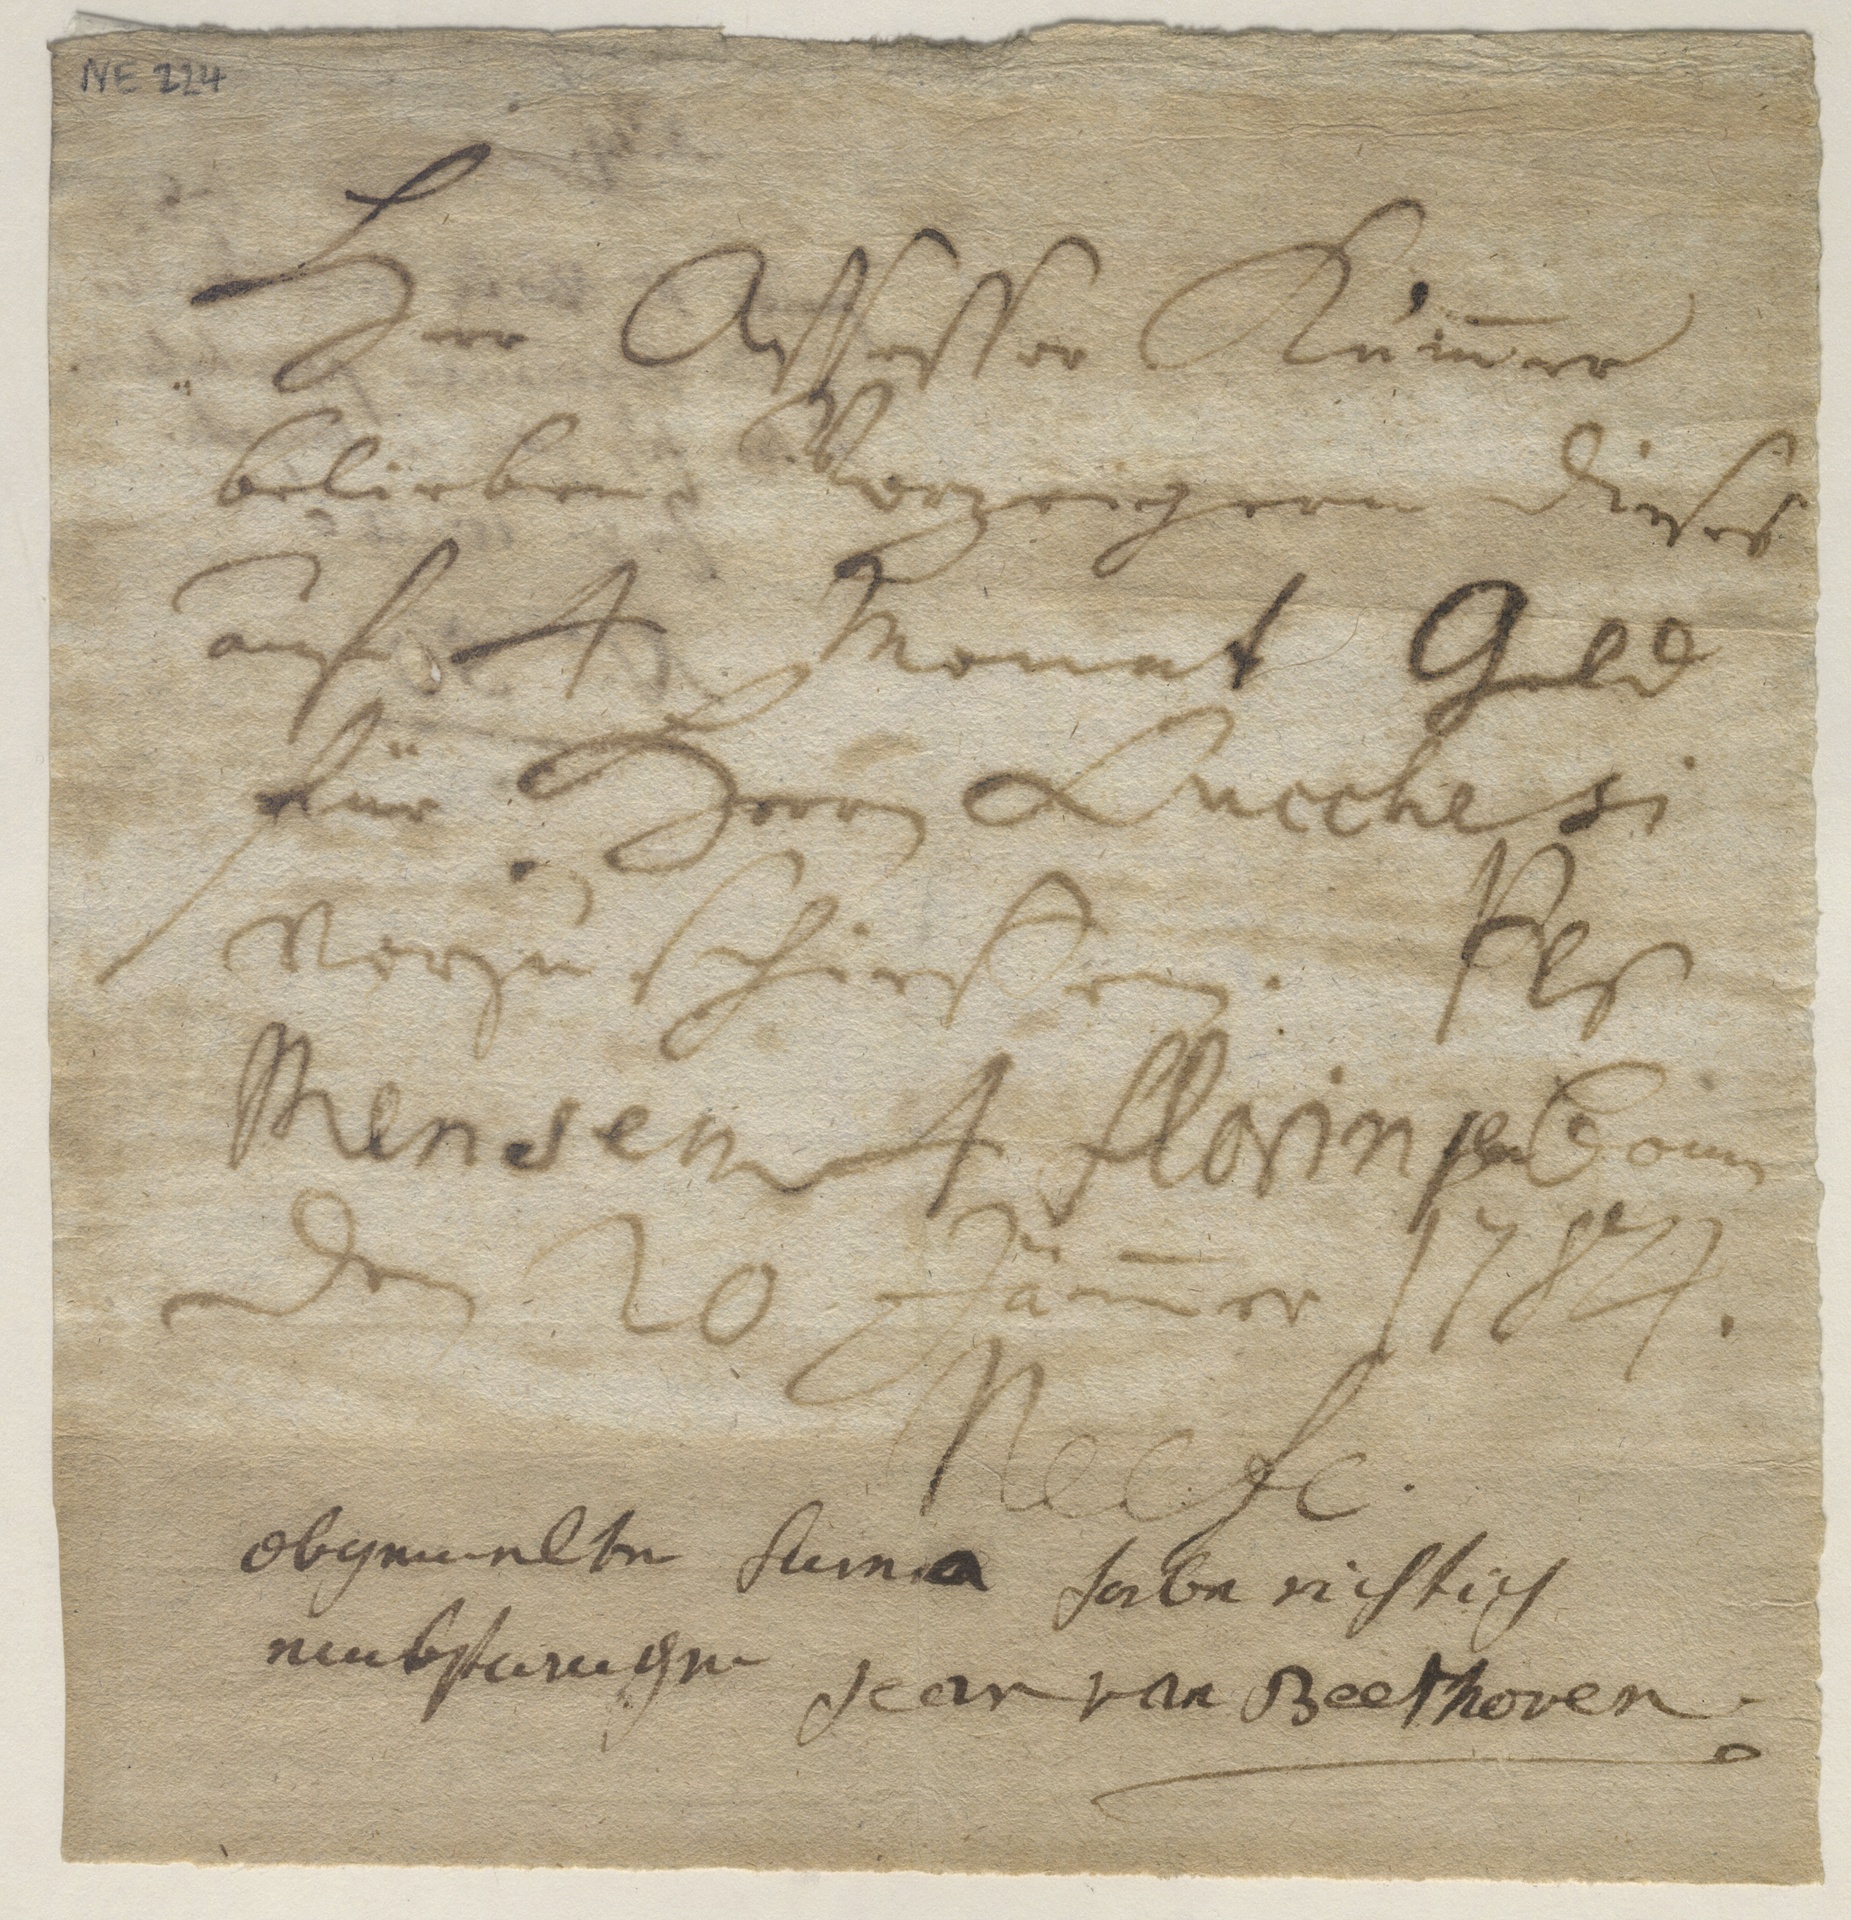 NE 224
Herr Assessor Küm̅er
belieben Vorzeigern dieses
auf 4 Monat Geld
für Herrn Lucchesi
vorzuschießen. Per
Mensem 4 florin per Com̅
den 20 Jäm̅er 1784.
Neefe.
obgemelte suma habe richtich
Jean van Beethoven